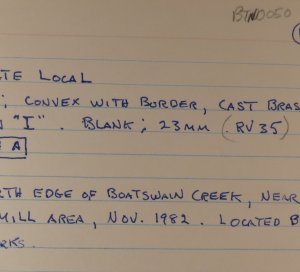 BTN0050
TE LOCAL
; CONVEX WITH BORDER, CAST BRAS
"I". BLANK; 23MM (RV35)
A
TH EDGE OF BOATSWAIN CREEK, NEAR
MILL AREA, NOV. 1982. LOCATED B
RKS.